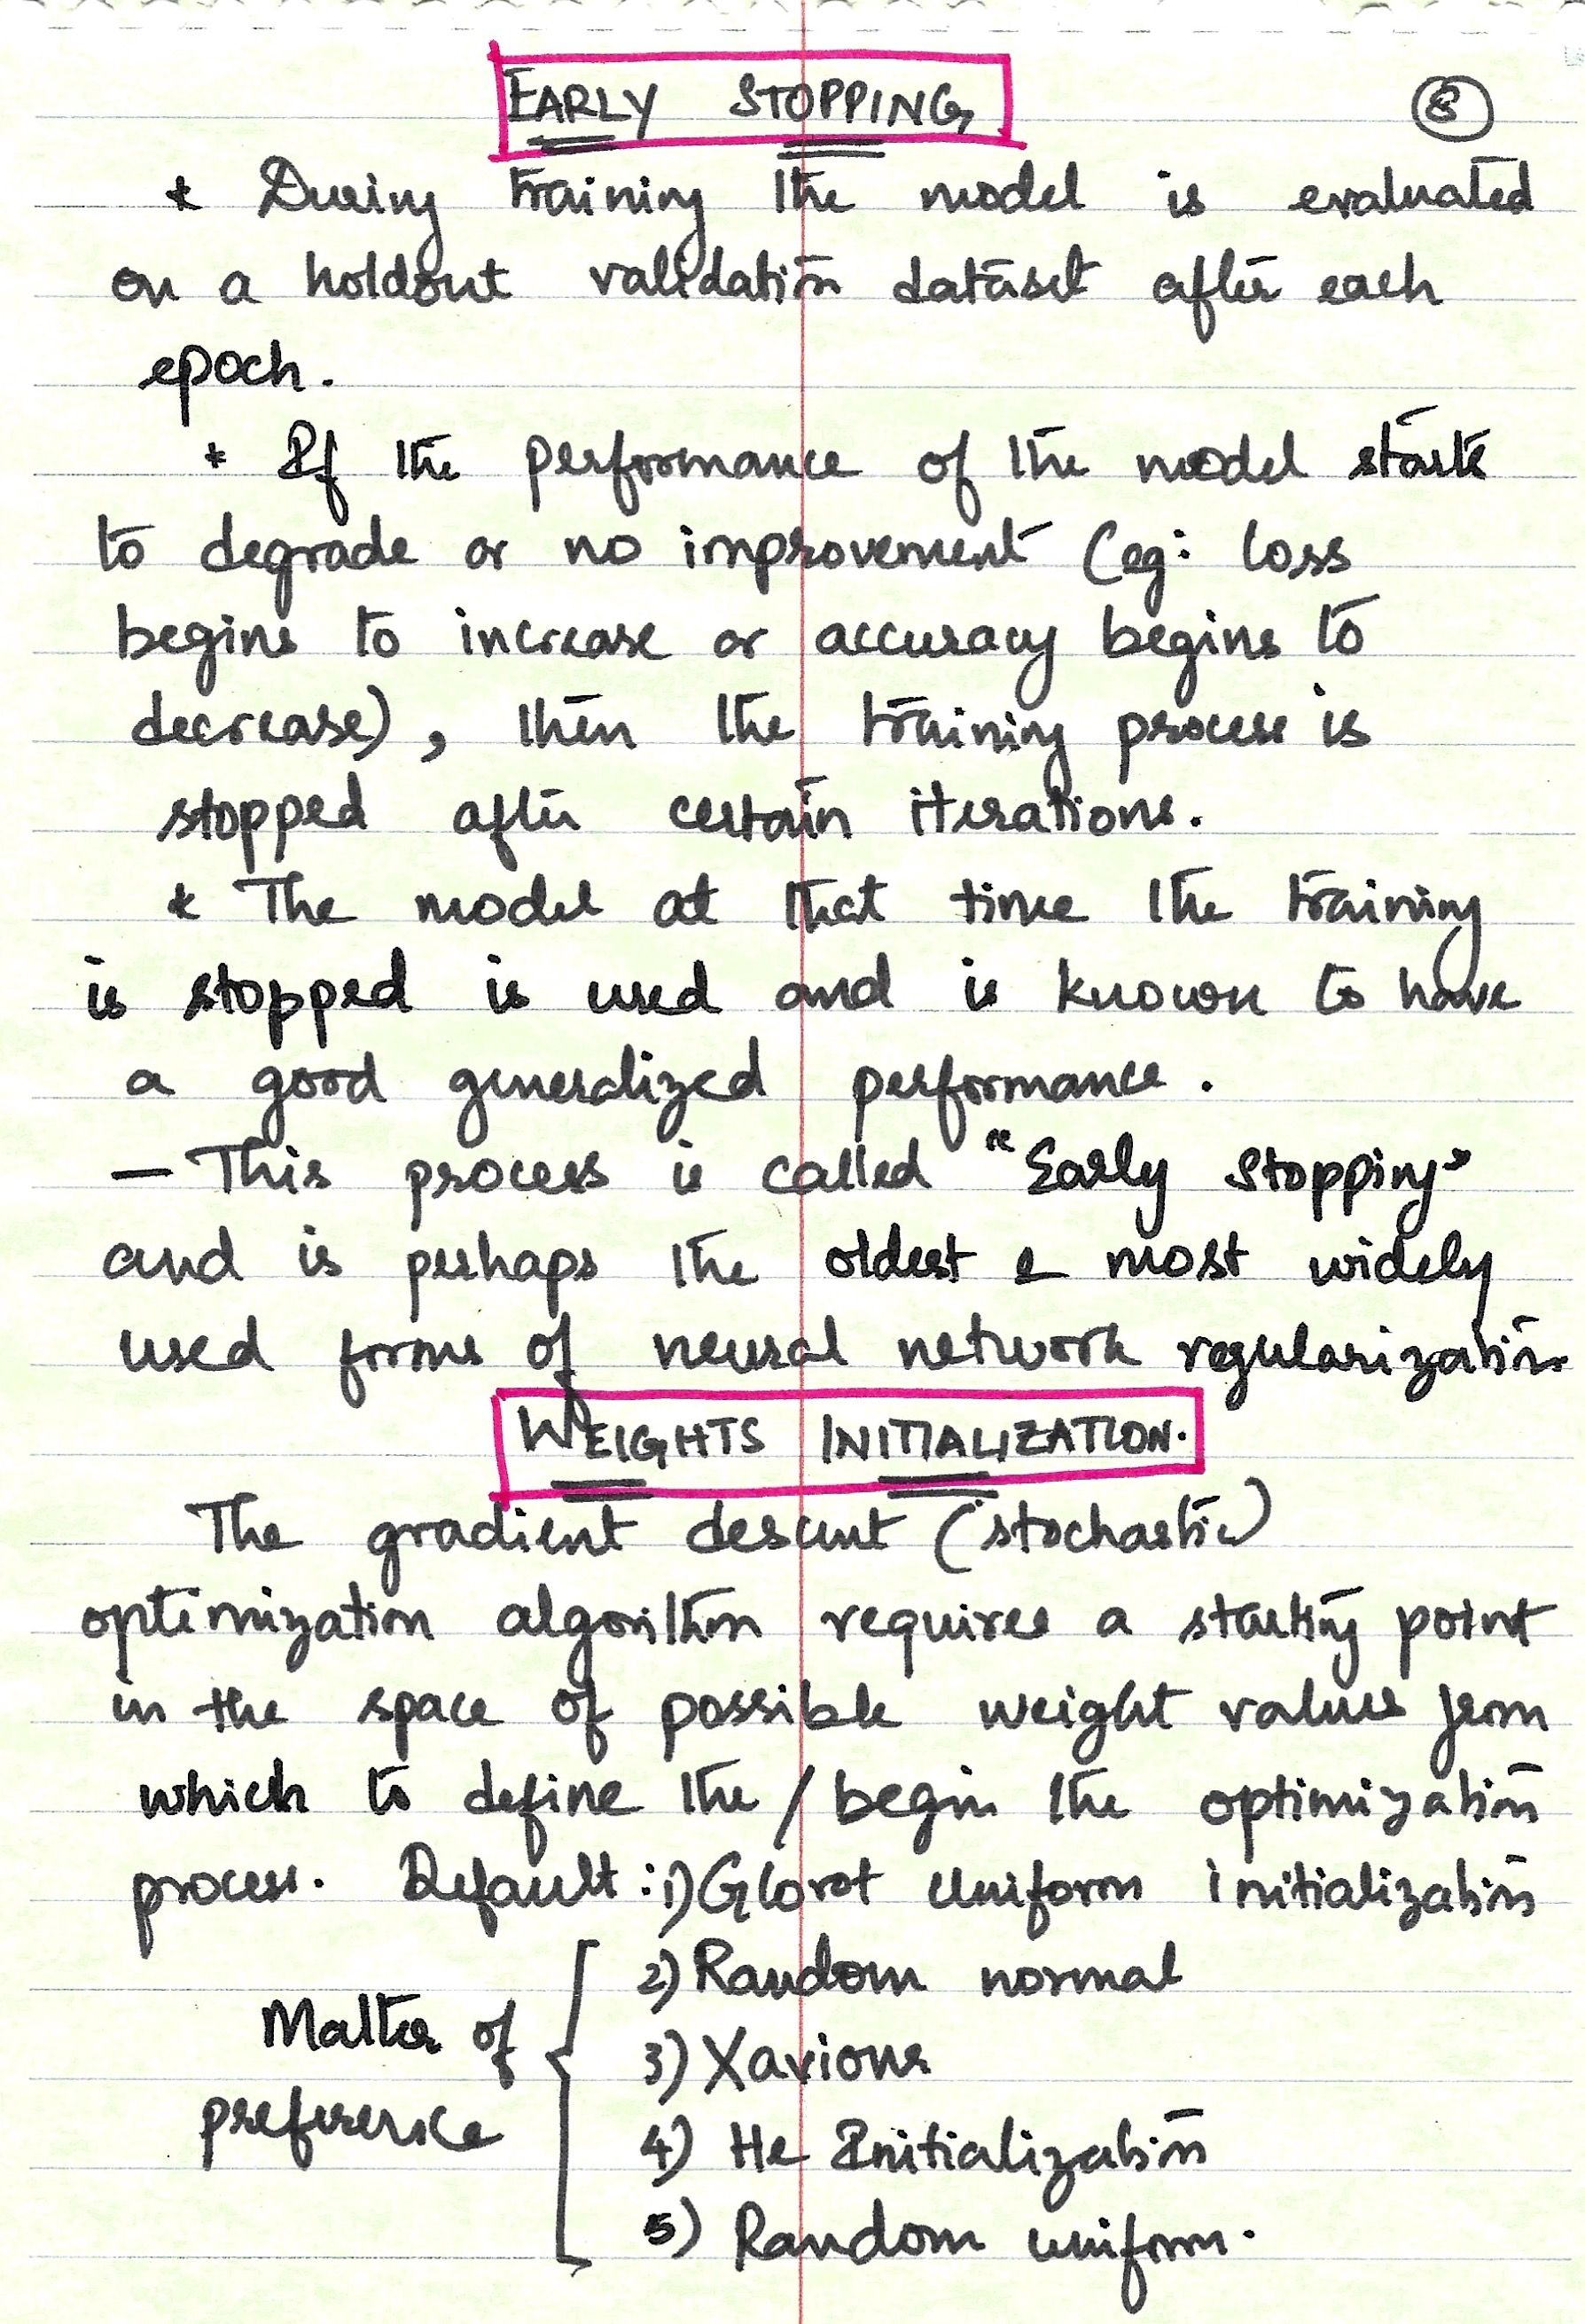 EARLY STOPPING
8
* During training the model is evaluated
on a holdout validation dataset after each
epoch.
* If the performance of the model starts
to degrade or no improvement (eg: loss
begins to increase or accuracy begins to
decrease), then the training process is
stopped after certain iterations.
* The model at that time the training
is stopped is used and is known to have
a good generalized performance.
— This process is called "Early Stopping"
and is perhaps the oldest & most widely
used forms of neural network regularization
WEIGHTS INITIALIZATION.
The gradient descent (stochastic)
optimization algorithm requires a starting point
in the space of possible weight values from
which to define the / begin the optimization
process. Default: 1) Glorot Uniform initialization
2) Random normal
Matter of
3) Xavious
preference
4) He Initialization
5) Random uniform.